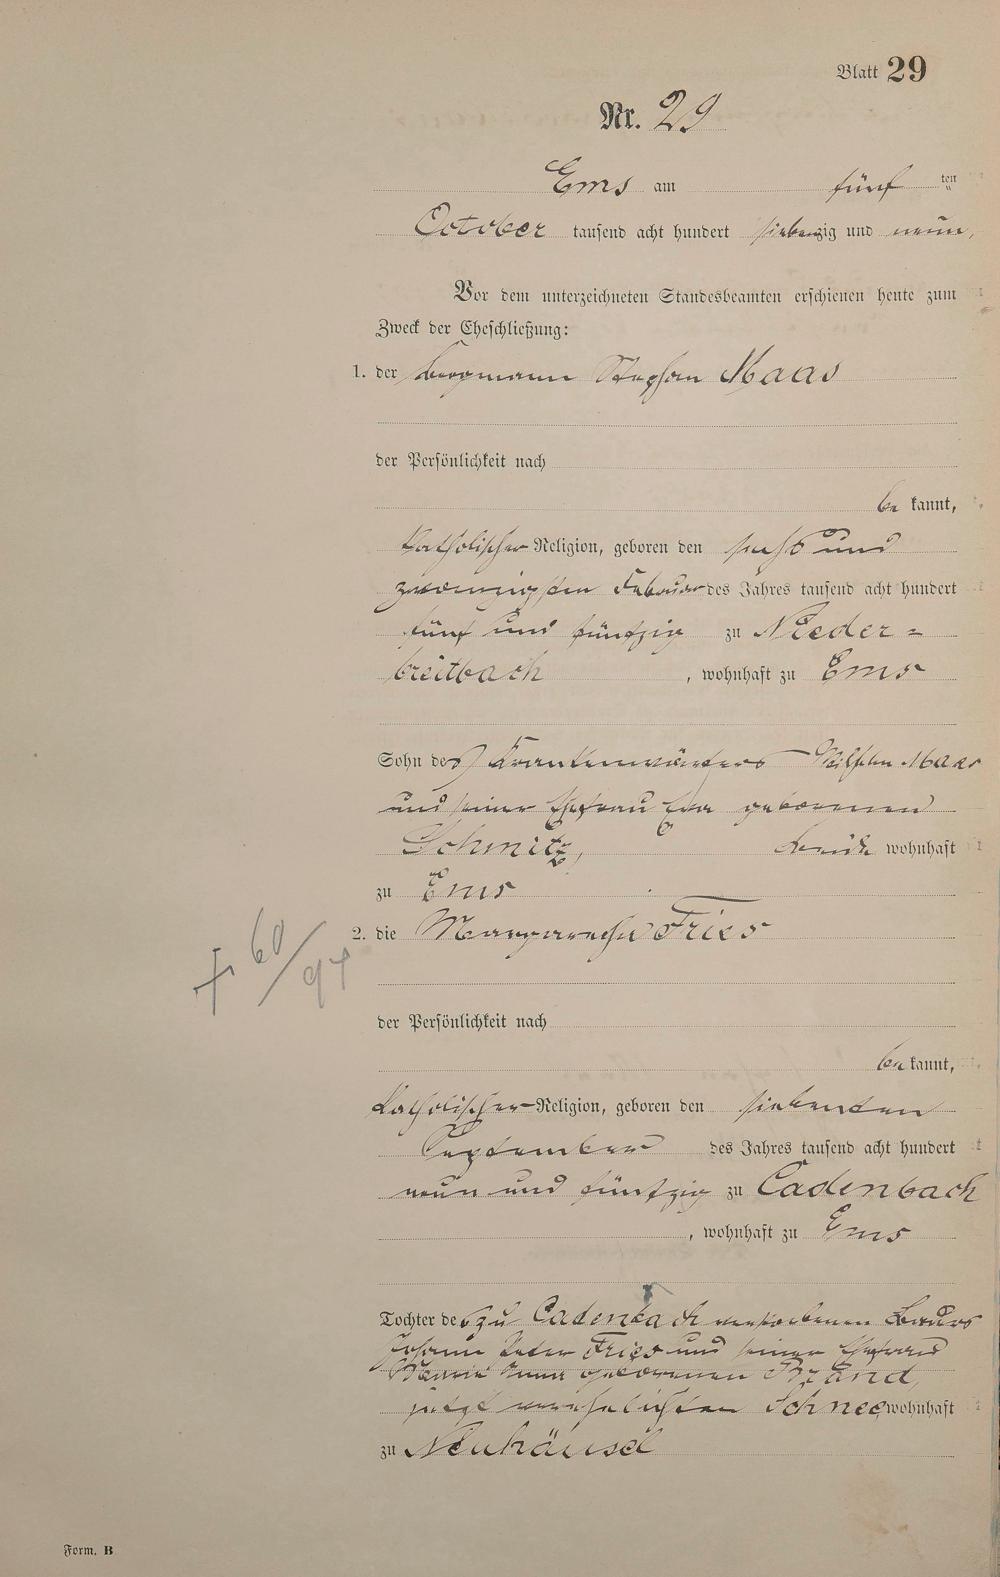 Blatt 29
Nr. 29
Ems am fünf ten
October tausend acht hundert siebenzig und neun,
Vor dem unterzeichneten Standesbeamten erschienen heute zum
Zweck der Eheschließung:
1. der Bergmann Stephan Maas
der Persönlichkeit nach
be kannt,
katholischer Religion, geboren den sechs und
zwanzigsten Februar des Jahres tausend acht hundert
fünf und fünfzig zu Nieder=
breitbach, wohnhaft zu Ems
Sohn des Krankenwärters Wilhelm Maas
und seiner Ehefrau Eva geborenen
Schmitz, beide wohnhaft
zu Ems
2. die Margaretha Fries
+ 60/94
der Persönlichkeit nach
be kannt,
katholischer Religion, geboren den siebenten
September des Jahres tausend acht hundert
neun und fünfzig zu Cadenbach
, wohnhaft zu Ems
Tochter des zu Cadenbach verstorbenen
Johann Peter Fries und seiner Ehefrau
Maria Anna geborenen Brand,
jetzt verehelichten Schnee wohnhaft
zu Neuhäusel
Form. B